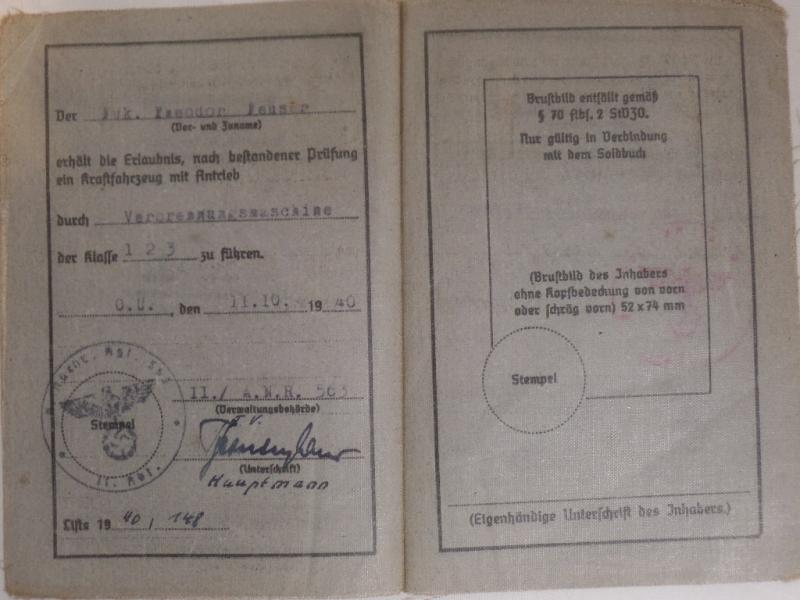 Der Theodor
(Vor- und Zuname)
erhält die Erlaubnis, nach bestandener Prüfung
ein Kraftfahrzeug mit Antrieb
durch Verbrennungsmaschine
der Klasse 1 2 3 zu führen.
O.U., den 11.10. 1940
II./ A.N.R. 563
(Verwaltungsbehörde)
Stempel
II. Abt.
(Unterschrift)
Hauptmann
Liste 1940/148
Brustbild entfällt gemäß
§ 70 Abs. 2 StVZO.
Nur gültig in Verbindung
mit dem Soldbuch
(Brustbild des Inhabers
ohne Kopfbedeckung von vorn
oder schräg vorn) 52 x 74 mm
Stempel
(Eigenhändige Unterschrift des Inhabers.)